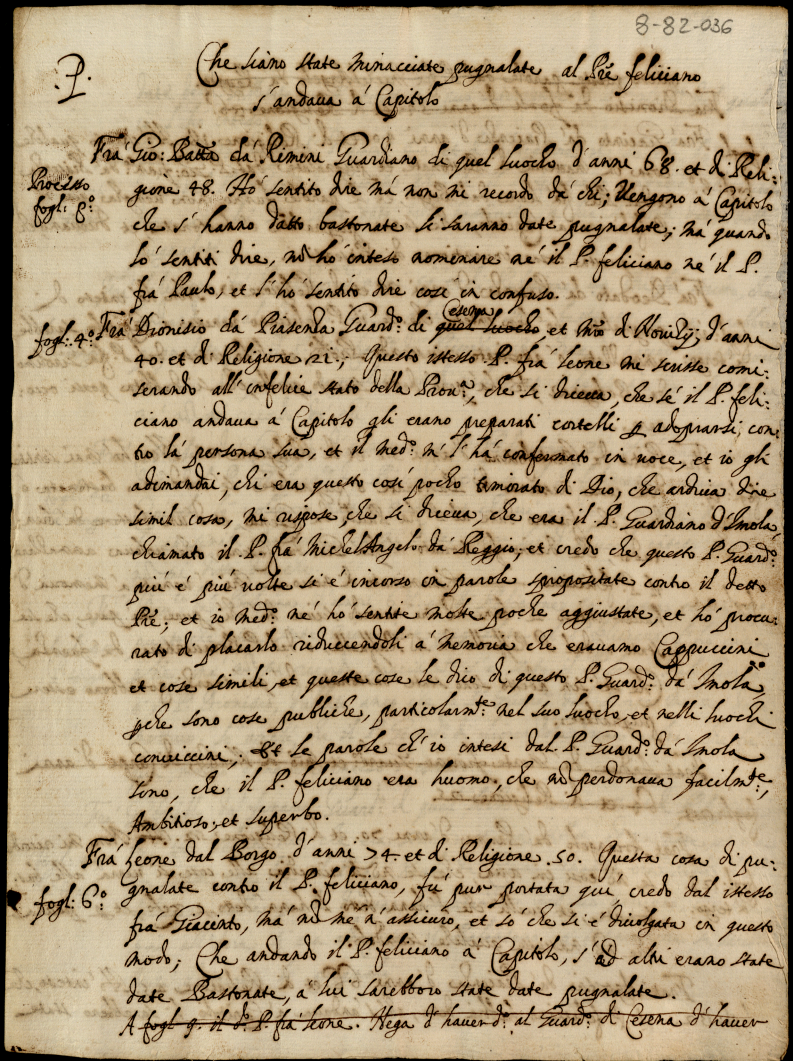 8-82-036
.P.
Che siano state minacciate pugnalate al Pre feliciano
s'andaua á Capitolo
Frá Gio: Batta dá Rimini Guardiano di quel luocho d'anni 68. et di Reli:
Processo
fogl: 8°
gione 48. Hó sentito dire má non mi recordo dá chi; Uengono á Capitolo
che s'hanno datto bastonate li saranno date pugnalate; má quando
ló sentiti dire, nō hó inteso nomenire né il P. feliciano né il P.
frá Paulo, et l'hó sentito dire cosí in confuso.
Cesena
fogl: 4°
Frá Dionisio dá Piasenza Guard.° di quel luocho, et Mro di Nouitij, d'anni
40. et di Religione 21.; Questo istesso P. frá leone mi scrisse comi:
serando all'infelice stato della Prou.ª, che si diceua, che sé il P. feli:
ciano andaua á Capitolo gli erano preparati cortelli p adoprarsi, con:
tro lá persona sua, et il med.° m'l'há confermato in uoce, et io gli
adimandai, chi era questo cosí pocho timorato di Dio, che ardiua dire
simil cosa, mi rispose, che si diceua, che era il P. Guardiano d'Imola
chiamato il P. frá Michel'Angelo dá Reggio, et credo che questo P. Guard.°
piú é piú uolte si é incorso in parole spropositate contro il detto
Pre; et io med.° né hó sentite molte poche aggiustate, et hó procu:
rato di placarlo riducendoli á memoria che erauamo Cappuccini
et cose simili, et queste cose le dico di questo P. Guard.° dá Imola,
pche sono cose publiche, particolarmte nel suo luocho, et nelli luochi
conuiccini; Et le parole ch'io intesi dal P. Guard.° dá Imola
sono, che il P. feliciano era huomo, che nō perdonaua facilmte,
Ambitioso, et superbo.
Frá Leone dal Borgo d'anni 74. et di Religione .50. Questa cosa di pu:
fogl: 6°
gnalate contro il P. feliciano, fú pur portata quí credo dal istesso
frá Giacinto, má nō mé n'assicuro, et só che si é diuolgata in questo
modo; Che andando il P. feliciano á Capitolo, s'ad altri erano state
date Bastonate, á lui sarebboro state date pugnalate.
A fogl 9. il d.° P. frá leone. Nega d'hauer d.° al Guard.° di Cesena d'hauer